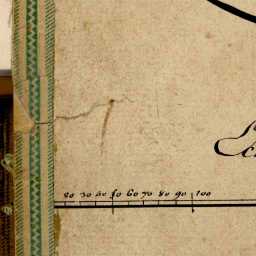 20 30 40 50 60 70 80 90 100